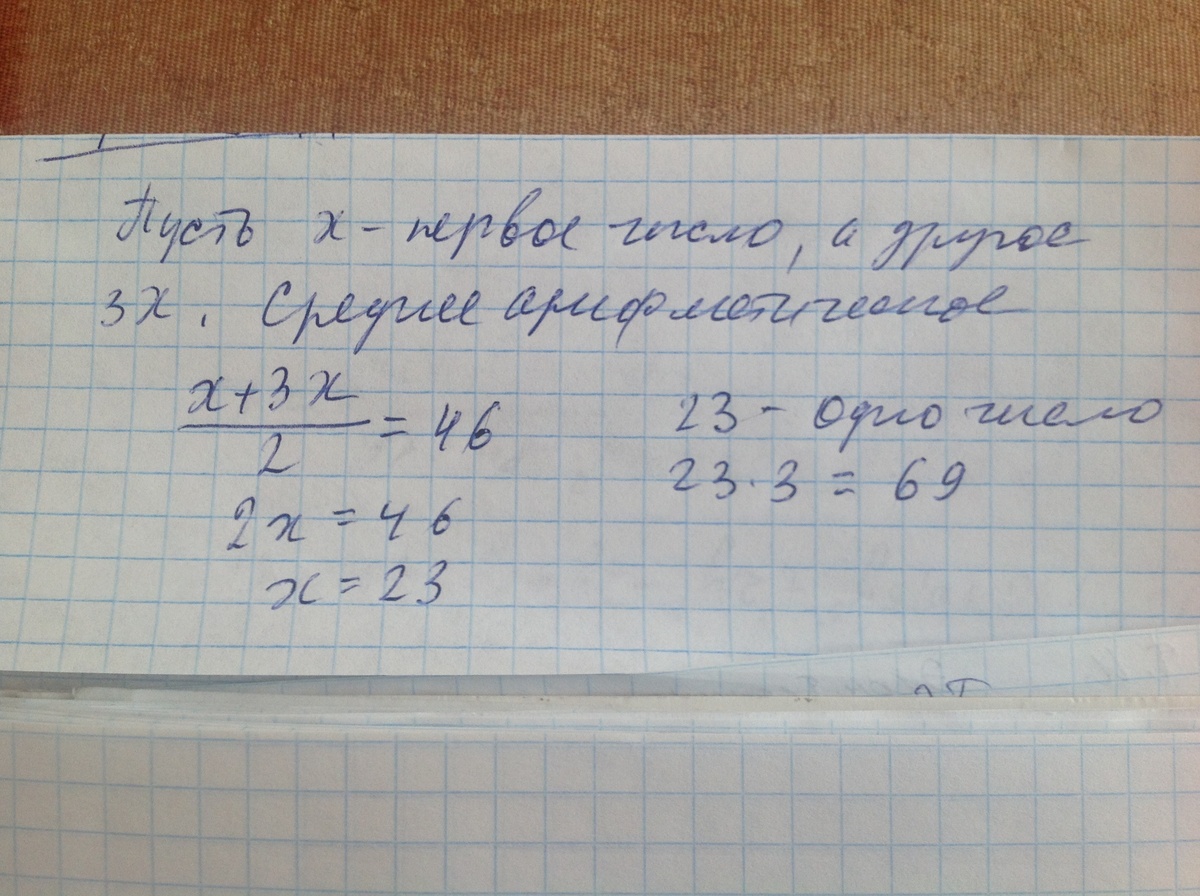 Пусть x - первое число, а другое
3x. Среднее арифметическое
x+3x
—— = 46
2
2x = 46
x = 23
23 - одно число
23·3 = 69